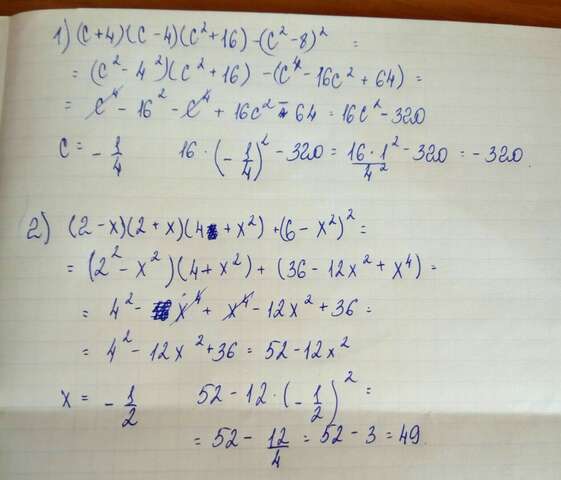 1) (c+4)(c-4)(c²+16)-(c²-8)² =
= (c²-4²)(c²+16) - (c⁴-16c²+64) =
= c⁴-16²-c⁴+16c²-64 = 16c²-320
c = -1/4 16·(-1/4)²-320 = 16·1²/4² -320 = -320
2) (2-x)(2+x)(4+x²)+(6-x²)² =
= (2²-x²)(4+x²)+(36-12x²+x⁴) =
= 4²-x⁴+x⁴-12x²+36 =
= 4²-12x²+36 = 52-12x²
x = -1/2 52-12·(-1/2)² =
= 52-12/4 = 52-3 = 49.